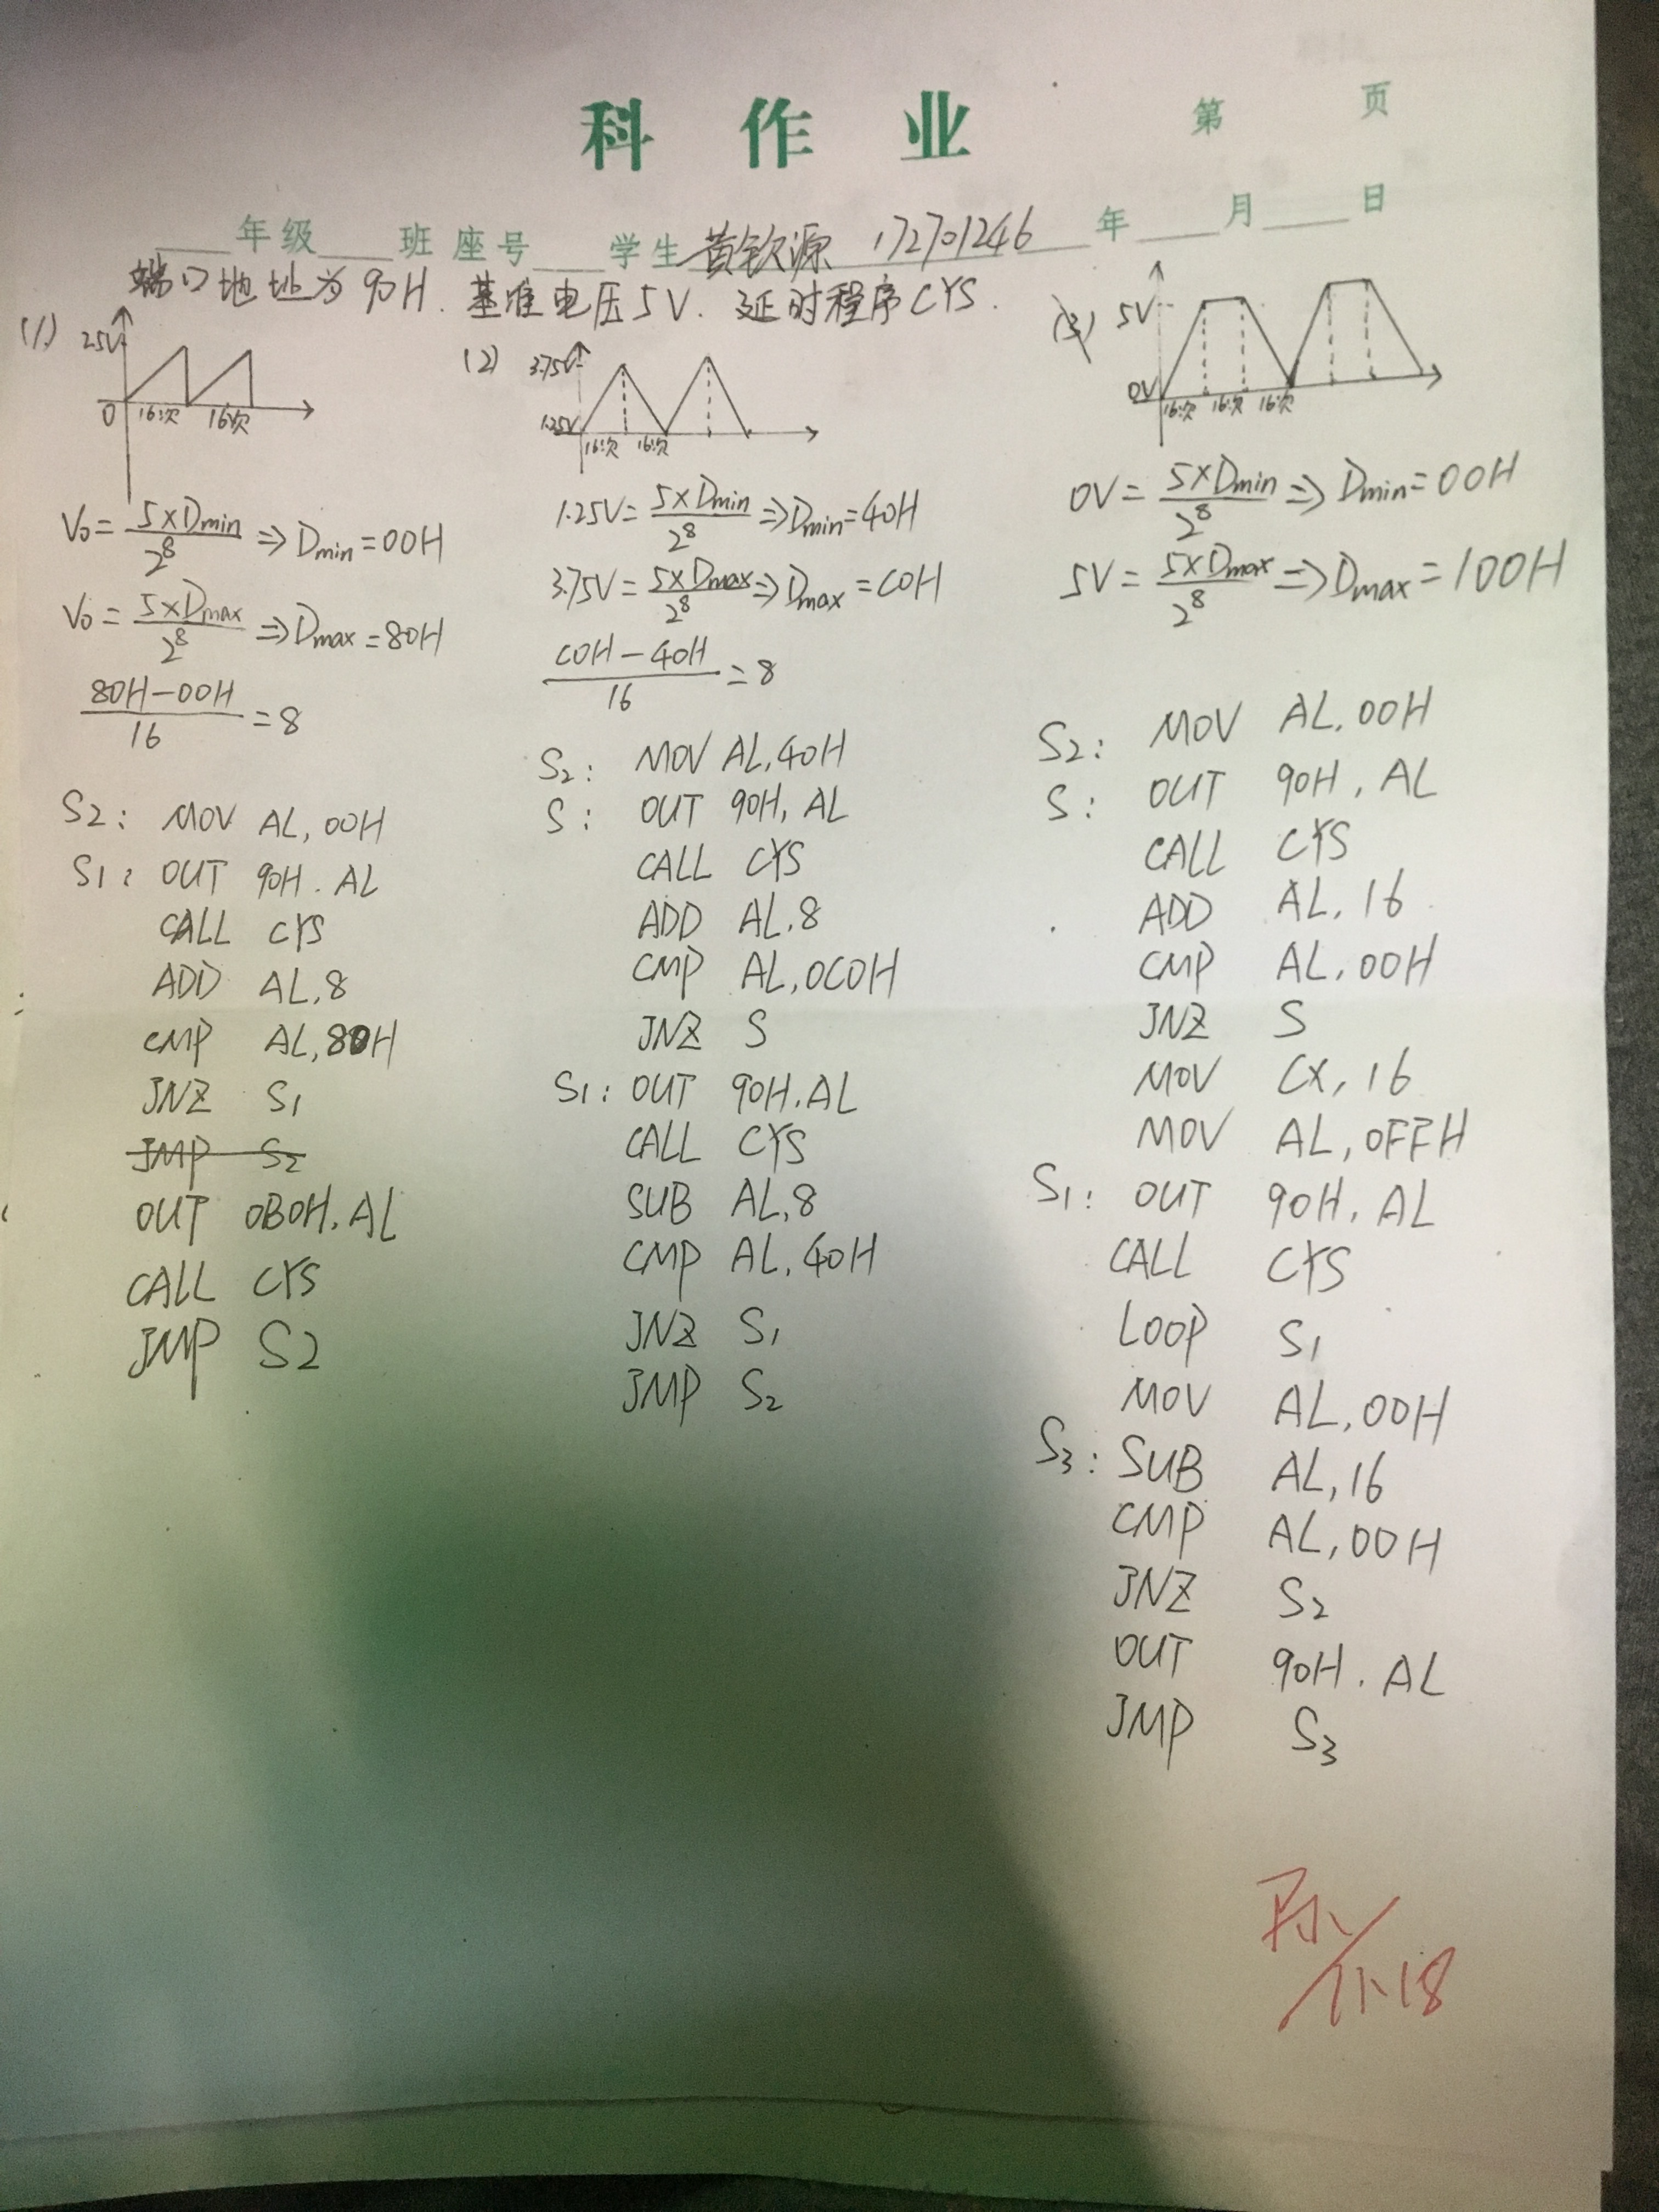 科 作 业
第 页
年级 班 座号 学生 黄钦源 172701246 年 月 日
端口地址为90H. 基准电压5V. 延时程序CYS.
(1)
2.5V
0
16次 16次
V₀ = 5×Dmin / 2⁸ ⇒ Dmin = 00H
V₀ = 5×Dmax / 2⁸ ⇒ Dmax = 80H
80H-00H / 16 = 8
S2: MOV AL, 00H
S1: OUT 90H. AL
CALL CYS
ADD AL, 8
CMP AL, 80H
JNZ S1
JMP S2
OUT 0B0H. AL
CALL CYS
JMP S2
(2)
3.75V
1.25V
16次 16次
1.25V = 5×Dmin / 2⁸ ⇒ Dmin = 40H
3.75V = 5×Dmax / 2⁸ ⇒ Dmax = C0H
C0H-40H / 16 = 8
S2: MOV AL, 40H
S: OUT 90H, AL
CALL CYS
ADD AL, 8
CMP AL, 0C0H
JNZ S
S1: OUT 90H. AL
CALL CYS
SUB AL, 8
CMP AL, 40H
JNZ S1
JMP S2
(3)
5V
0V
16次 16次 16次
0V = 5×Dmin / 2⁸ ⇒ Dmin = 00H
5V = 5×Dmax / 2⁸ ⇒ Dmax = 100H
S2: MOV AL, 00H
S: OUT 90H, AL
CALL CYS
ADD AL, 16
CMP AL, 00H
JNZ S
MOV CX, 16
MOV AL, 0FFH
S1: OUT 90H, AL
CALL CYS
LOOP S1
MOV AL, 00H
S3: SUB AL, 16
CMP AL, 00H
JNZ S2
OUT 90H. AL
JMP S3
11.18